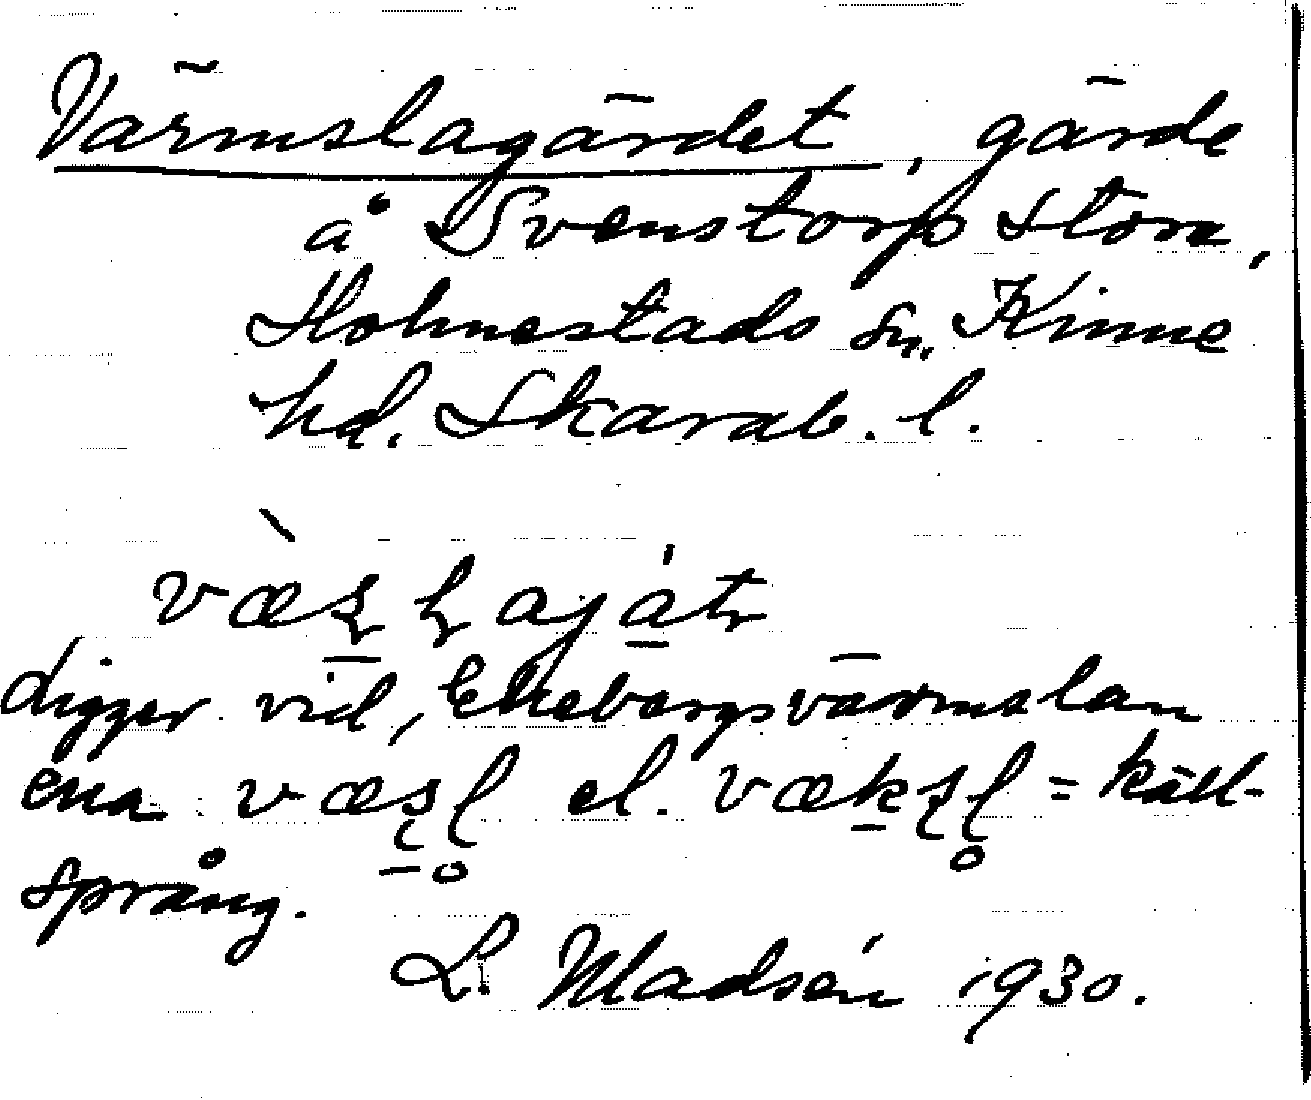 Värmslagärdet, gärde
å Svenstorp Stora,
Holmestads sn, Kinne
hd. Skarab. l.
ligger vid, Ekebergsvärmslan
ena væsl el. væksl = käll-
språng.
L. Madsén 1930.